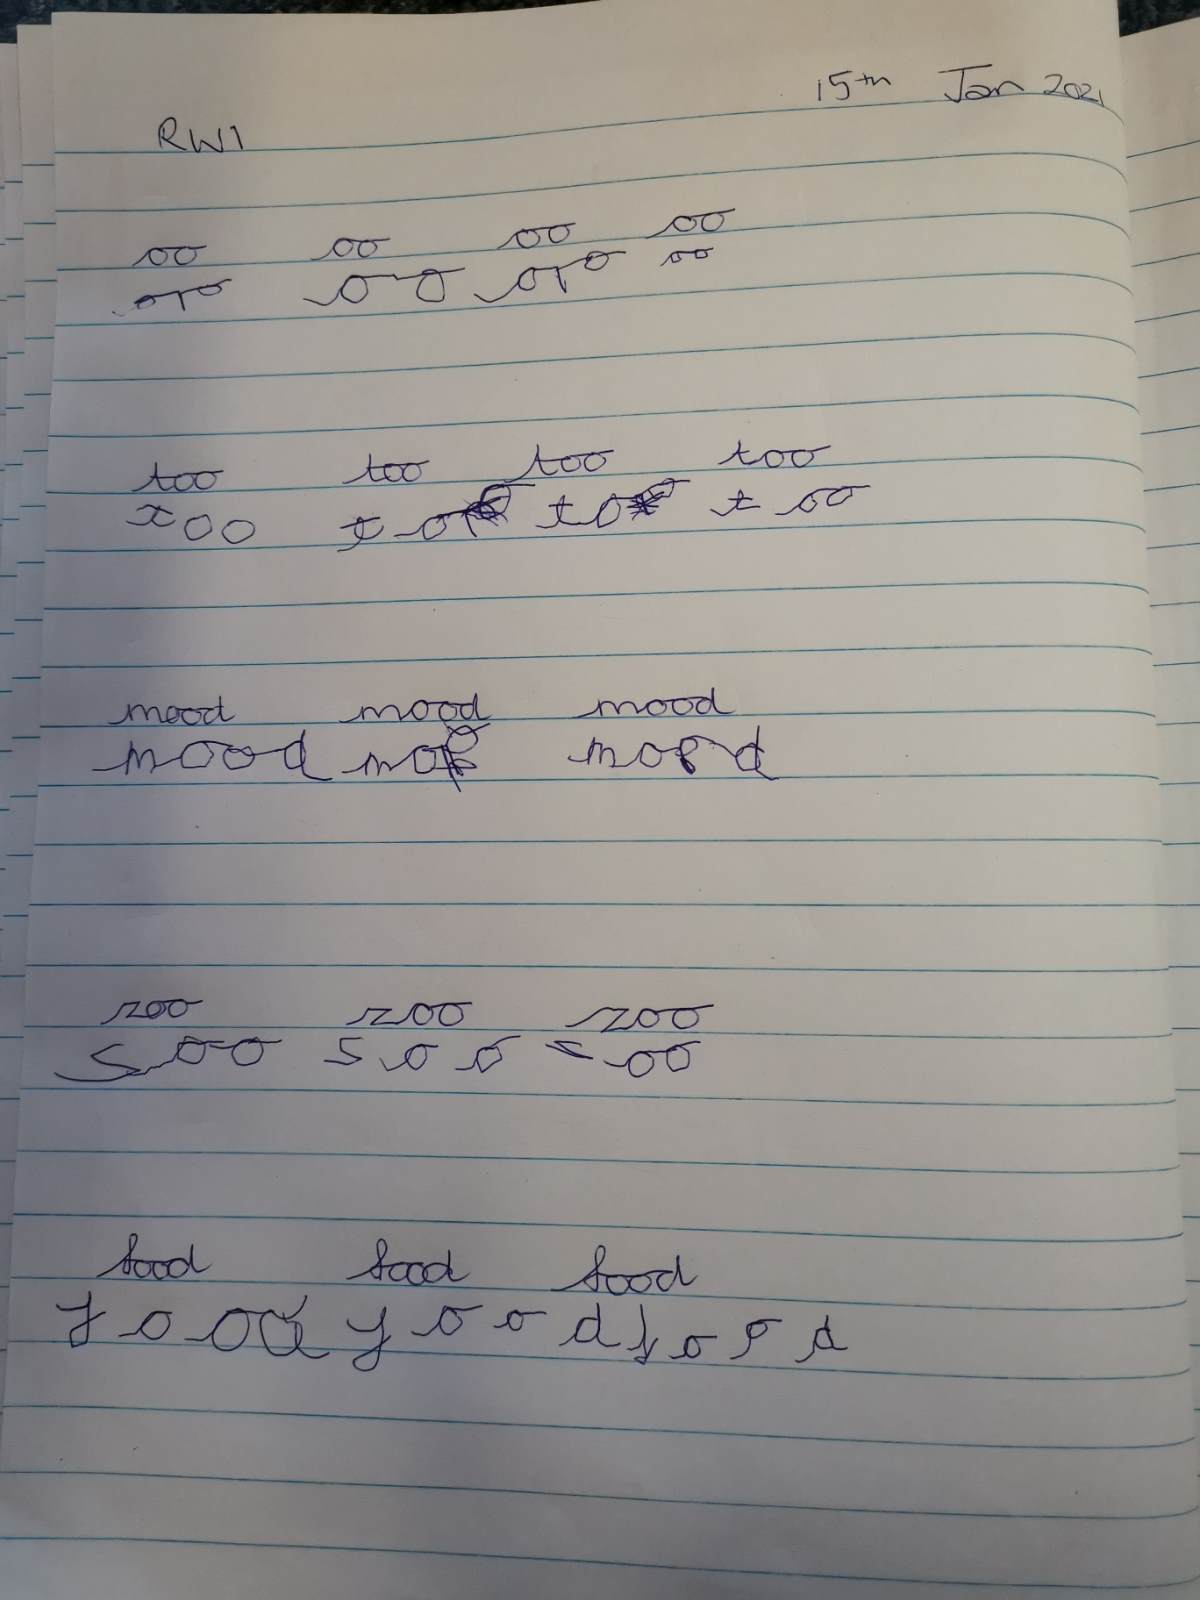 15th Jan 2021
RWI
oo oo oo oo
oo oo oo oo
too too too too
too too too too
mood mood mood
mood mood
zoo zoo zoo
oo oo oo
food food food
food food food